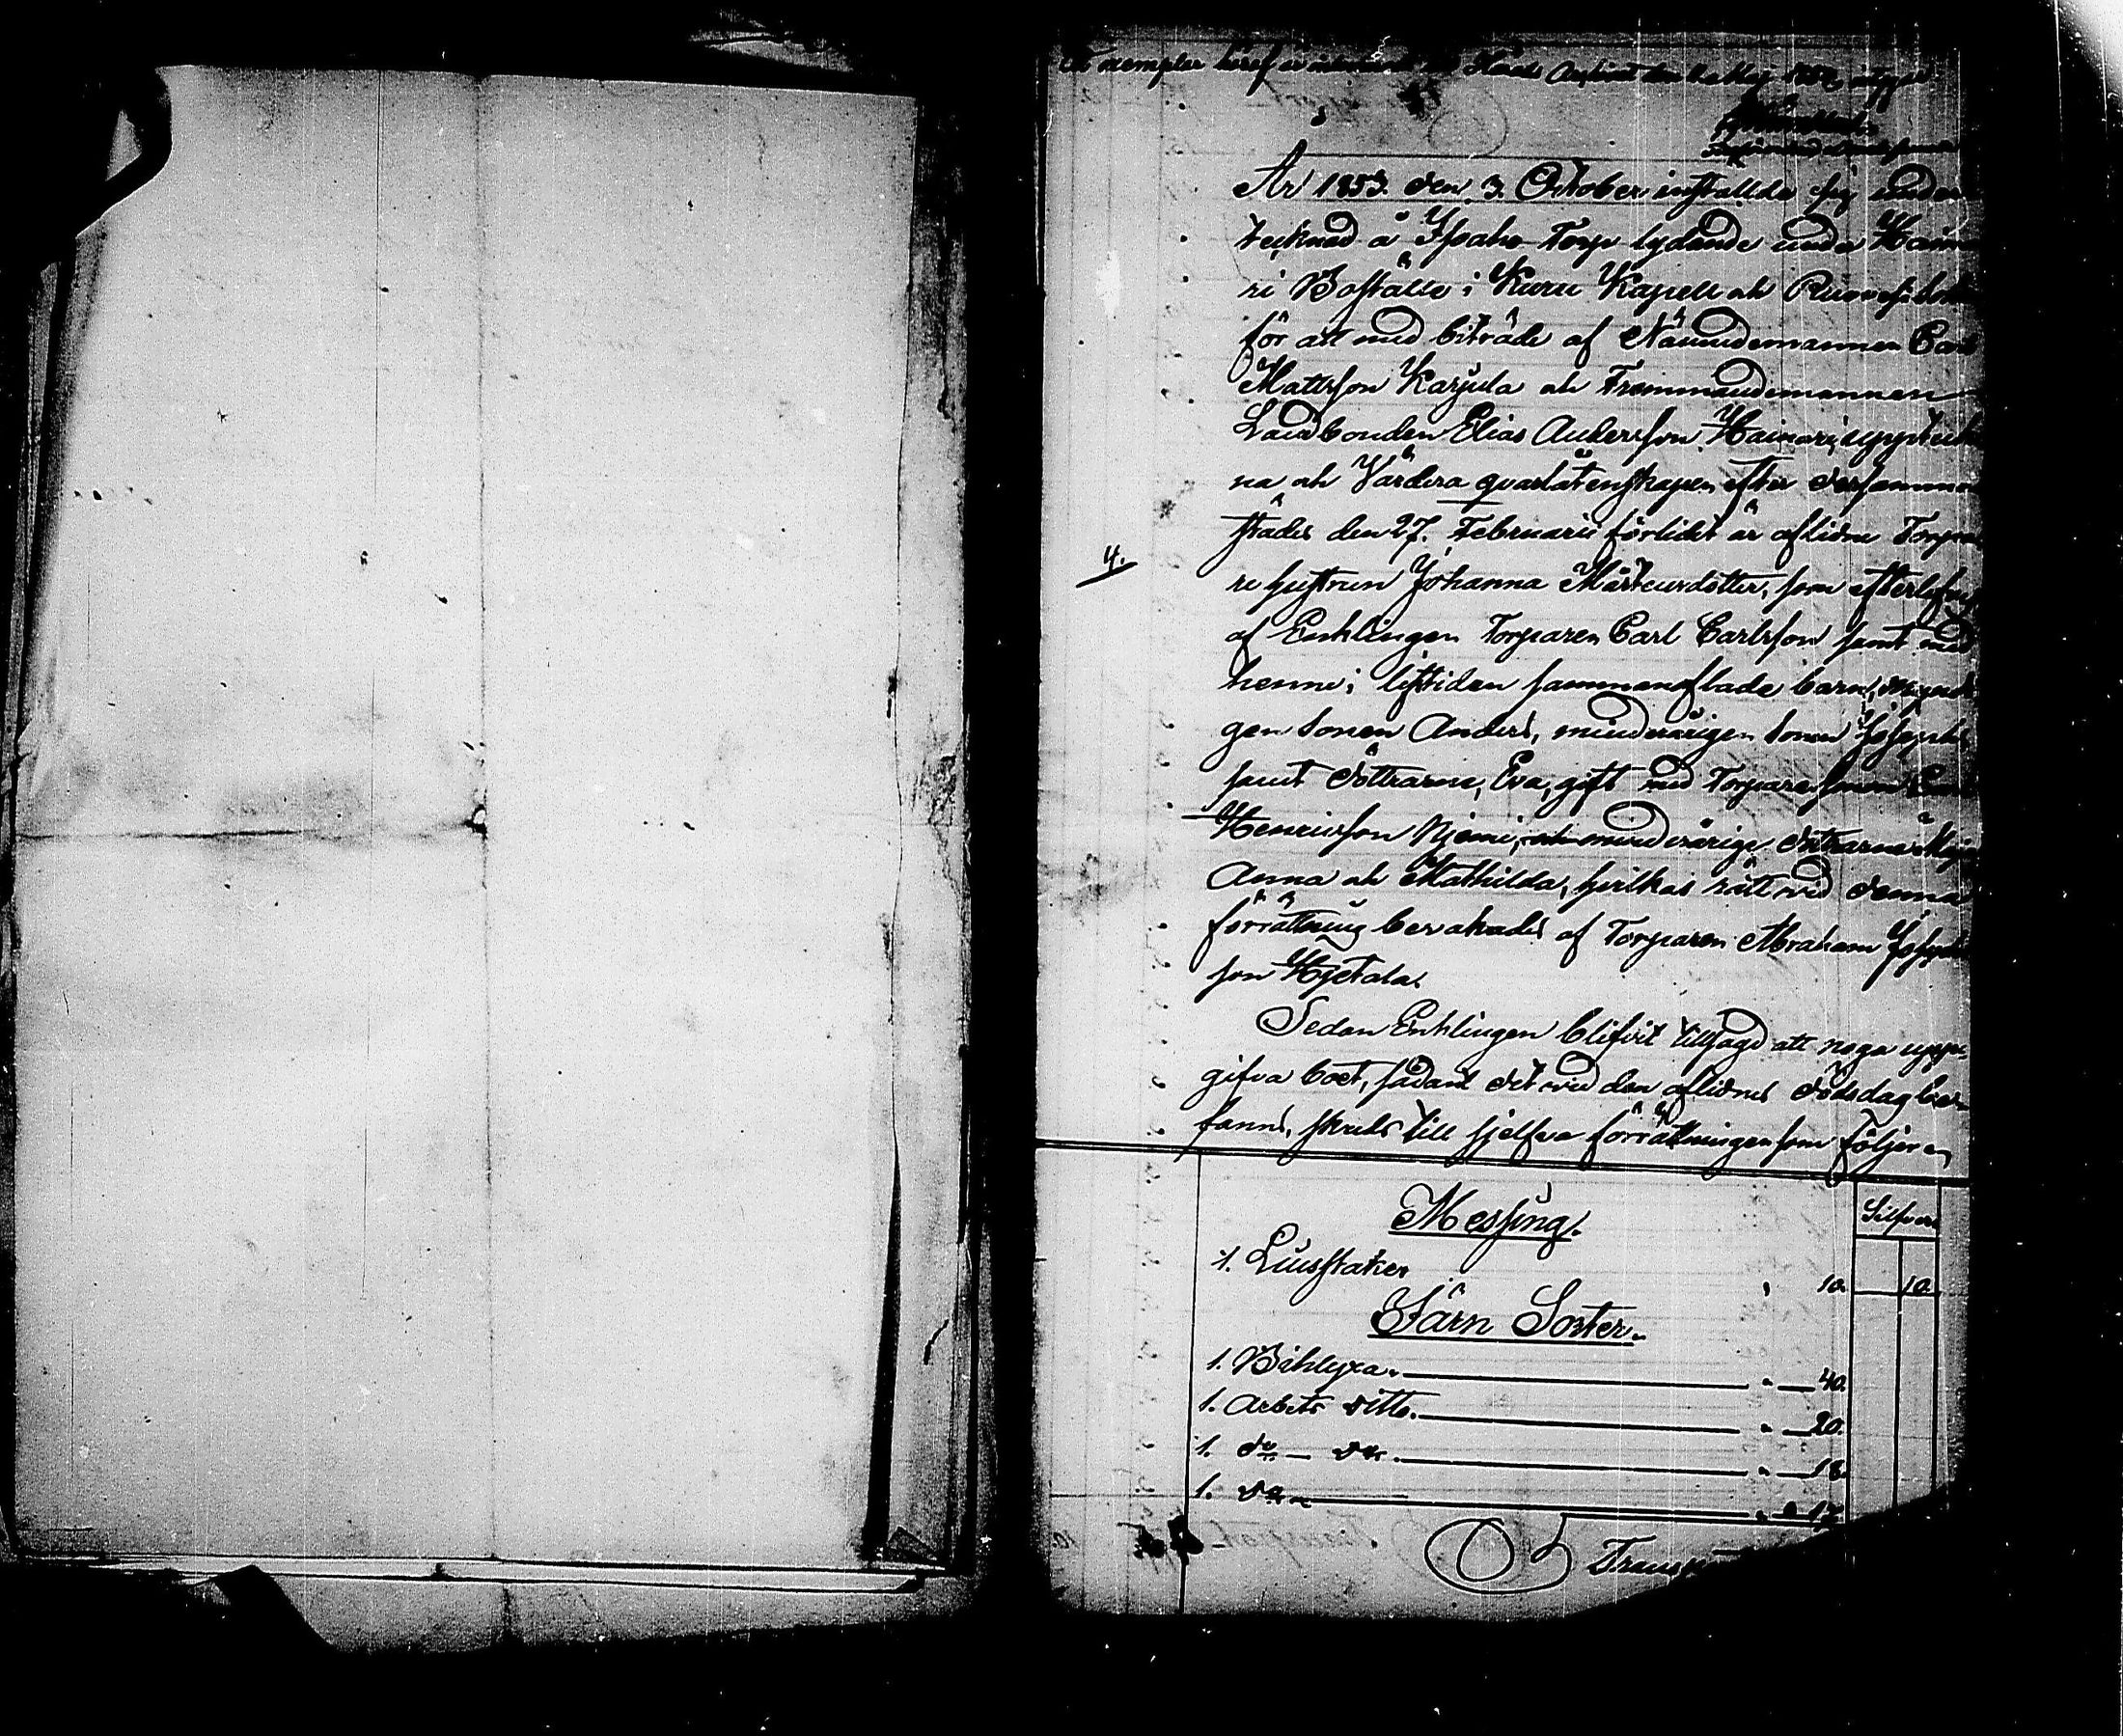 År 1853. den 3. October instälde sig under
tecknad å Isoaho Torp lydande under Hainа
ri Boställe i Kuru Kapell och Ruovesi Sock
för att med biträde af Nämndemannen Carl
Mattsson Karjula och Fremmandemannen
Landbonden Elias Andersson Hainari, uppteck
na och Värdera qvarlåtenskapen efter dersamma
städes den 27. Februarii förlidet år aflidne Torpa
4.
re hustrun Johanna Mårtensdotter, som efterlefves
af Enklingen Torparen Carl Carlsson samt med
henne i lifstiden sammanaflade barn, myndi
gen Sonen Anders, minderårigen Sonen Josephs
samt döttrarne, Eva, gift med Torparesonen
Henricsson Njemi, och minderårige döttrarne Maja
Anna och Mathilda, hvilkas rätt wid denna
förrättning bevakades af Torparen Abraham Josephs
son Hjetala.
Sedan Enklingen blifvit tillsagd att noga upp-
gifva boet, sådant det wid den aflidnes dödsdag be-
fanns, skreds till sjelfva förrättningen som följer en
Messing. Silfver
1. Ljusstaken " 10. 10.
Järn Sorter.
1. Bihlyxa. " 40.
1. Arbets ditto. " 20.
1. do do. " 18.
1. do " 17.
Transp